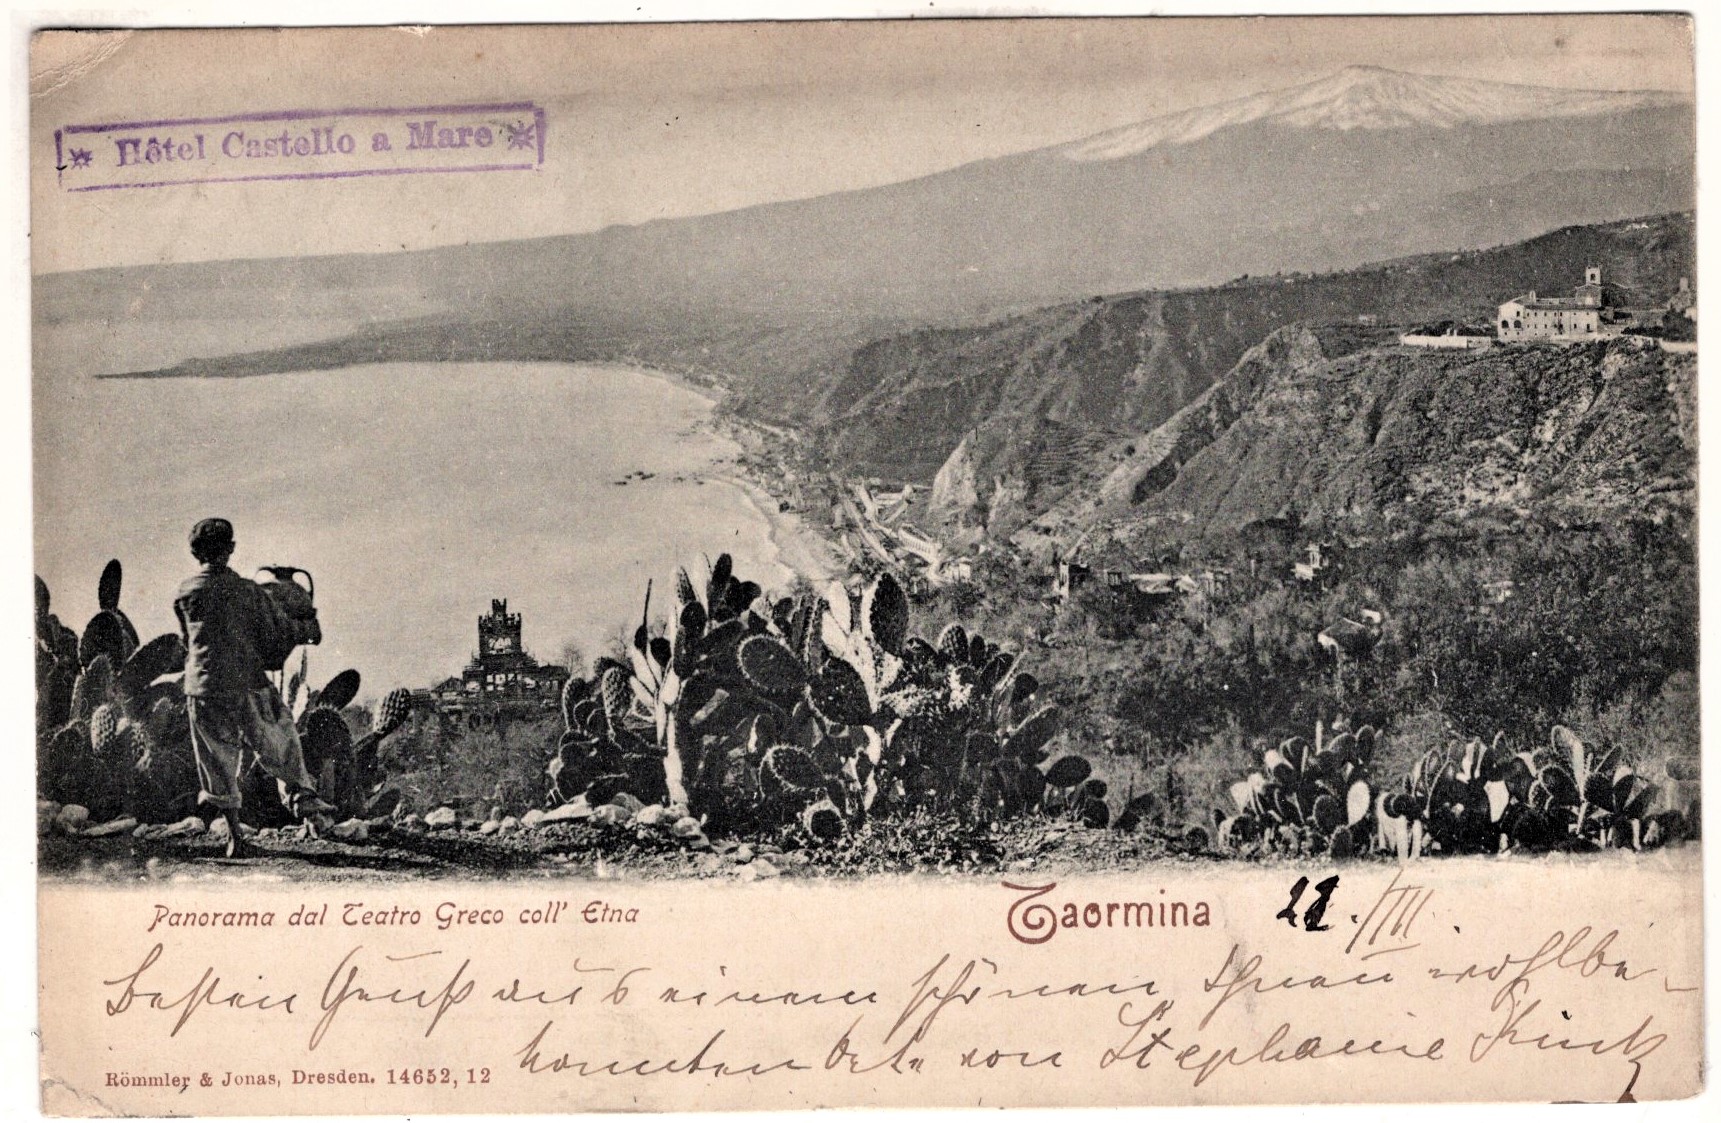 * Hôtel Castello a Mare *
Panorama dal Teatro Greco coll' Etna
Taormina
/III.
Besten Gruß aus einem schönen Ihnen wohlbe-
kannten Orte von Stephanie
Römmler & Jonas, Dresden. 14652, 12